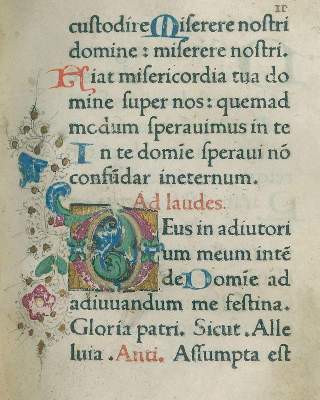 11
custodire Miserere nostri
domine : miserere nostri.
Fiat misericordia tua do
mine super nos : quemad
modum sperauimus in te
In te domīe speraui nō
confūdar ineternum.
Ad laudes.
Deus in adiutori
um meum intē
de Domīe ad
adiuuandum me festina.
Gloria patri. Sicut . Alle
luia . Anti. Assumpta est